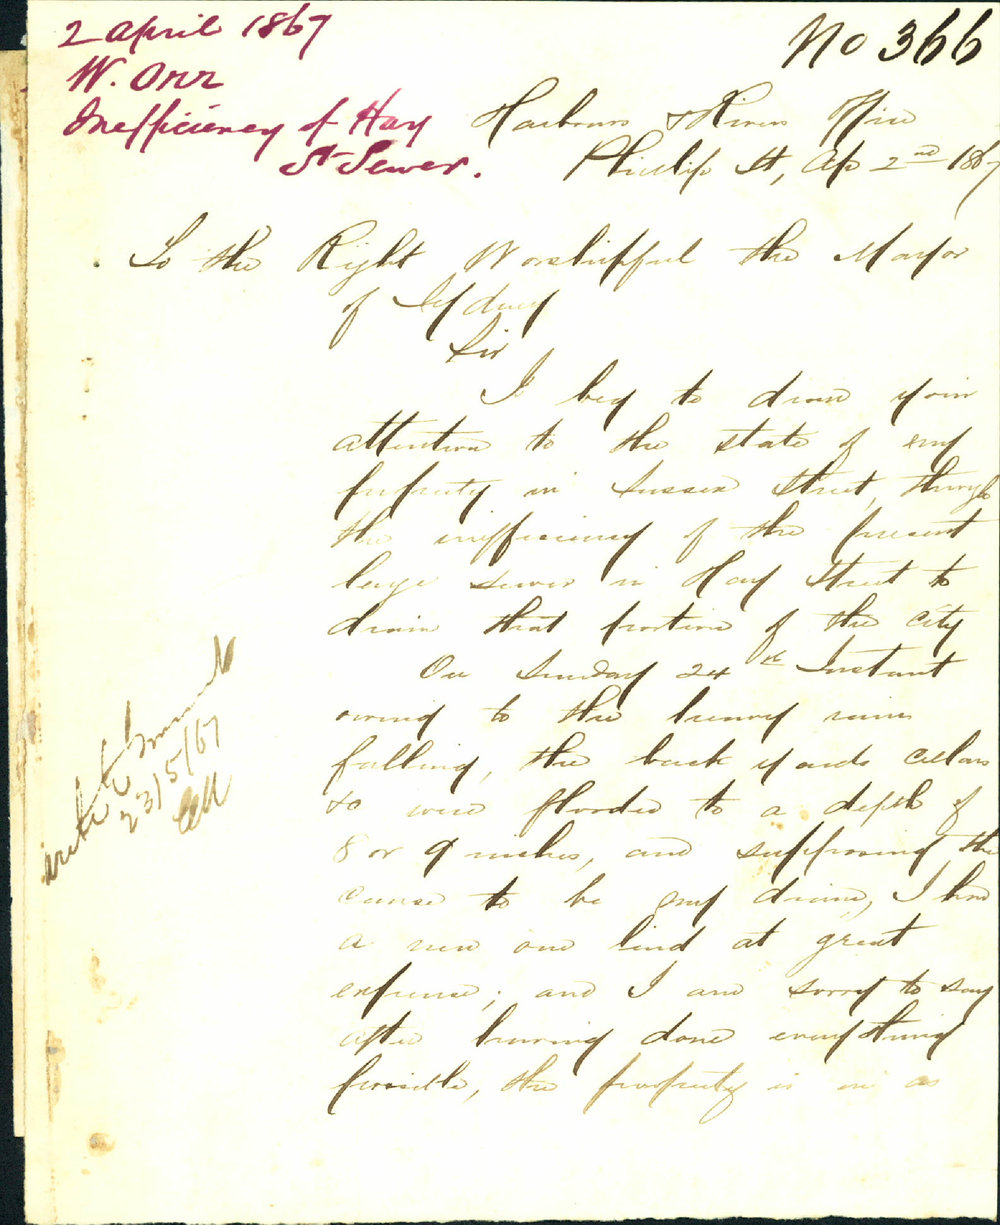 2 April 1867
W. Orr
Inefficiency of Hay
St Sewer.
No 366
Harbours & Rivers Office
Phillip St, Ap 2nd 1867
To the Right Worshipful the Mayor
of Sydney
Sir
I beg to draw your
attention to the state of my
property in Sussex Street, through
the inefficiency of the present
large sewer in Hay Street to
drain that portion of the City
On Sunday 24th Instant
owing to the heavy rains
falling, the back yards cellars
&c were flooded to a depth of
8 or 9 inches, and supposing the
cause to be my drain, I had
a new one laid at great
expense; and I am sorry to say
after having done everything
possible, the property is in as
23/5/67